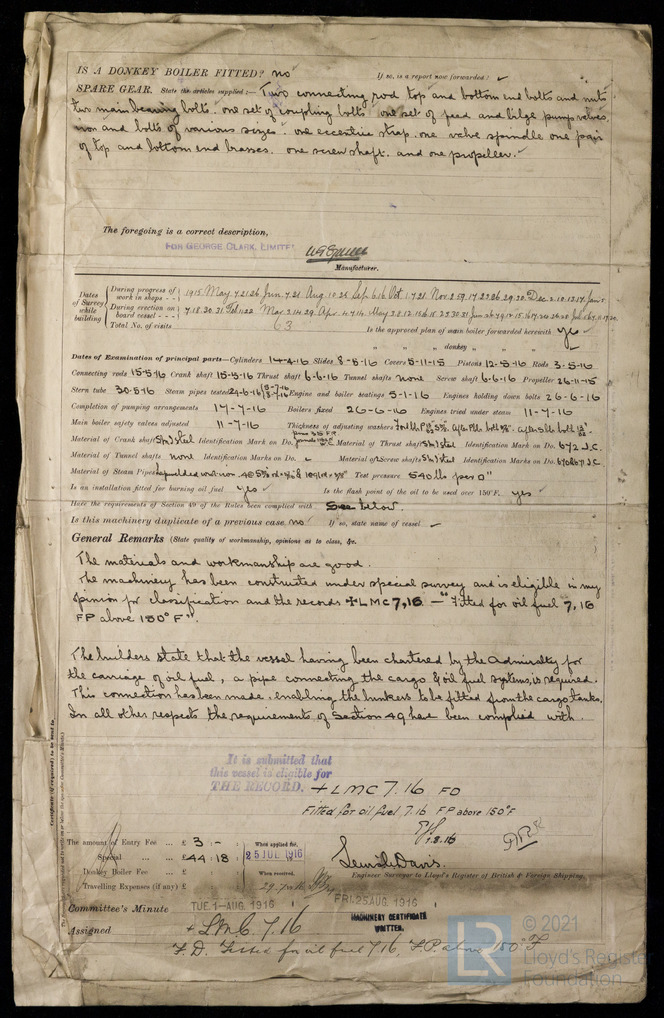 IS A DONKEY BOILER FITTED? no If so, is a report now forwarded? ✓
SPARE GEAR. State the articles supplied:— Two connecting rod top and bottom end bolts and nuts
two main bearing bolts. one set of coupling bolts one set of feed and bilge pump valves.
iron and bolts of various sizes. one eccentric strap. one valve spindle one pair
of top and bottom end brasses. one screw shaft. and one propeller.
The foregoing is a correct description,
FOR GEORGE CLARK, LIMITED
Manufacturer.
Dates of Survey while building
During progress of work in shops - - 1915 May. 7. 21. 26 Jun. 7. 21 Aug. 10. 25 Sep. 6. 16 Oct. 1. 7. 21 Nov. 2. 5. 9. 17. 22. 26. 29. 30 Dec. 2. 10. 13. 17 Jan. 5.
During erection on board vessel - - -
Total No. of visits 63 Is the approved plan of main boiler forwarded herewith yes
" " " donkey " " "
Dates of Examination of principal parts—Cylinders 14-4-16 Slides 8-5-16 Covers 5-11-15 Pistons 12-5-16 Rods 3-5-16
Connecting rods 15-5-16 Crank shaft 15-5-16 Thrust shaft 6-6-16 Tunnel shafts none Screw shaft 6-6-16 Propeller 26-11-15
Stern tube 30-5-16 Steam pipes tested 24-6-16 Engine and boiler seatings 5-1-16 Engines holding down bolts 26-6-16
Completion of pumping arrangements 17-7-16 Boilers fixed 26-6-16 Engines tried under steam 11-7-16
Main boiler safety valves adjusted 11-7-16 Thickness of adjusting washers
Material of Crank shaft Sm Steel Identification Mark on Do. Material of Thrust shaft Sm Steel Identification Mark on Do. 672 J.C.
Material of Tunnel shafts none Identification Marks on Do. ✓ Material of Screw shafts Sm Steel Identification Marks on Do. 670 & 671 J.C.
Material of Steam Pipes Lapwelded iron Test pressure 540 lbs per □"
Is an installation fitted for burning oil fuel yes ✓ Is the flash point of the oil to be used over 150°F. yes ✓
Have the requirements of Section 49 of the Rules been complied with See below.
Is this machinery duplicate of a previous case no If so, state name of vessel ✓
General Remarks (State quality of workmanship, opinions as to class, &c.
The materials and workmanship are good.
The machinery has been constructed under special survey and is eligible in my
opinion for classification and the records +LMC 7,16 — "Fitted for oil fuel 7,16
FP above 150°F".
The builders state that the vessel having been chartered by the Admiralty for
the carriage of oil fuel, a pipe connecting the cargo & oil fuel systems, is required.
This connection has been made. enabling the bunkers to be fitted from the cargo tanks.
In all other respects the requirements of Section 49 have been complied with.
It is submitted that
this vessel is eligible for
THE RECORD. + LMC 7.16 FD
Fitted for oil fuel 7.16 FP above 150°F
1.8.16
The amount of Entry Fee ... £ 3 : - : When applied for,
Special ... ... £ 44 : 18 : 25 JUL 1916
Donkey Boiler Fee ... £ : : When received,
Travelling Expenses (if any) £ : : 29.7.16
Lewis Davis.
Engineer Surveyor to Lloyd's Register of British & Foreign Shipping.
Committee's Minute TUE. 1-AUG. 1916 FRI. 25 AUG 1916
Assigned + LMC 7.16
MACHINERY CERTIFICATE
WRITTEN.
F.D. Fitted for oil fuel 7.16, F.P. above 150°F
Certificate (if required) to be sent to
LR © 2021
Lloyd's Register
Foundation